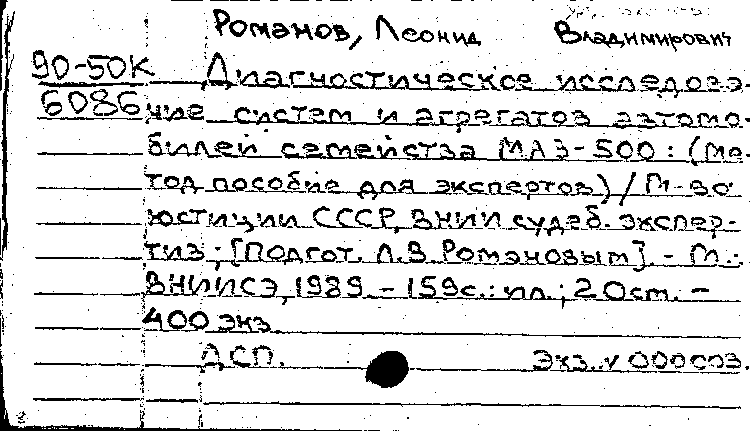 Романов, Леонид Владимирович
90-50К Диагностическое исследова-
6086 ние систем и агрегатов автомо-
билей семейства МАЗ-500: (Ме-
тод пособие для экспертов) / М-во
юстиции СССР, ВНИИ судеб. экспер-
тиз; [Подгот. Л.В. Романовым]. - М.:
ВНИИСЭ, 1989. - 159с.: ил.; 20см. -
400 экз.
ДСП. Экз. № 000003.